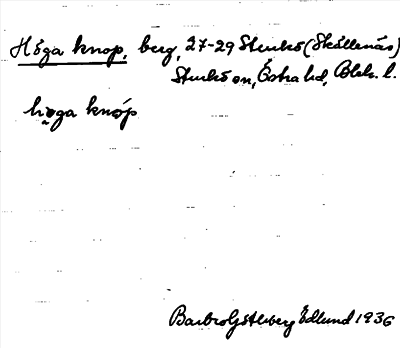 Höga knop, berg, 27-29 Stenkö (Sköllenäs)
Stenkö on, Östra hd, Blek. l.
höga knóp
Barbro Edlund 1936